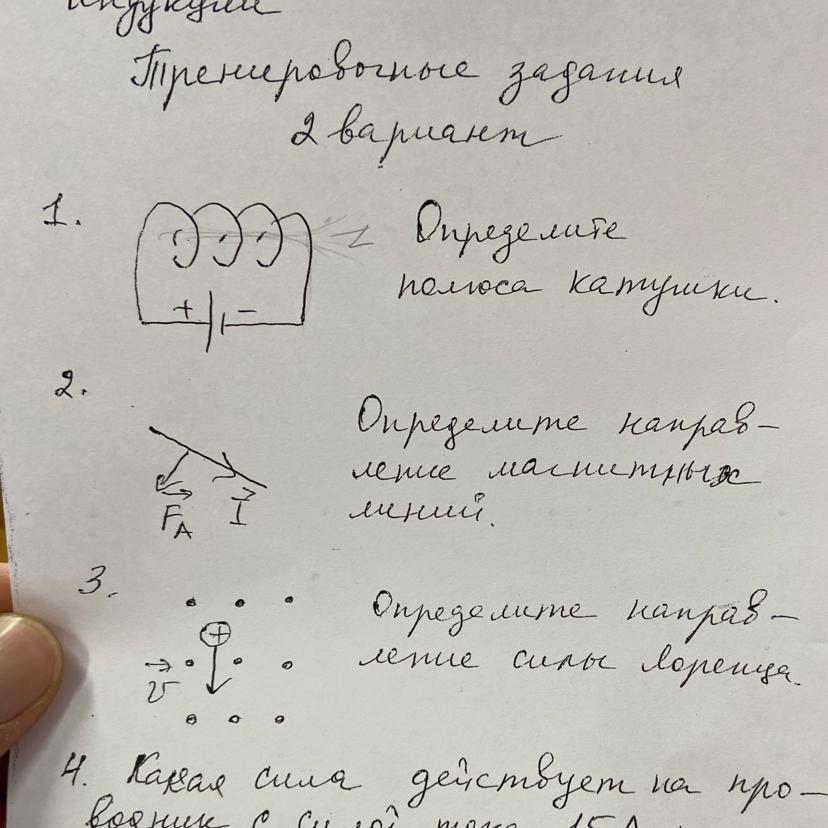 индукции
Тренировочные задания
2 вариант
1.
Определите
полюса катушки.
+ −
2.
Определите направ-
ление магнитных
линий.
F_A I
3.
Определите направ-
ление силы Лоренца.
+
v
4. Какая сила действует на про-
водник с силой тока 15А